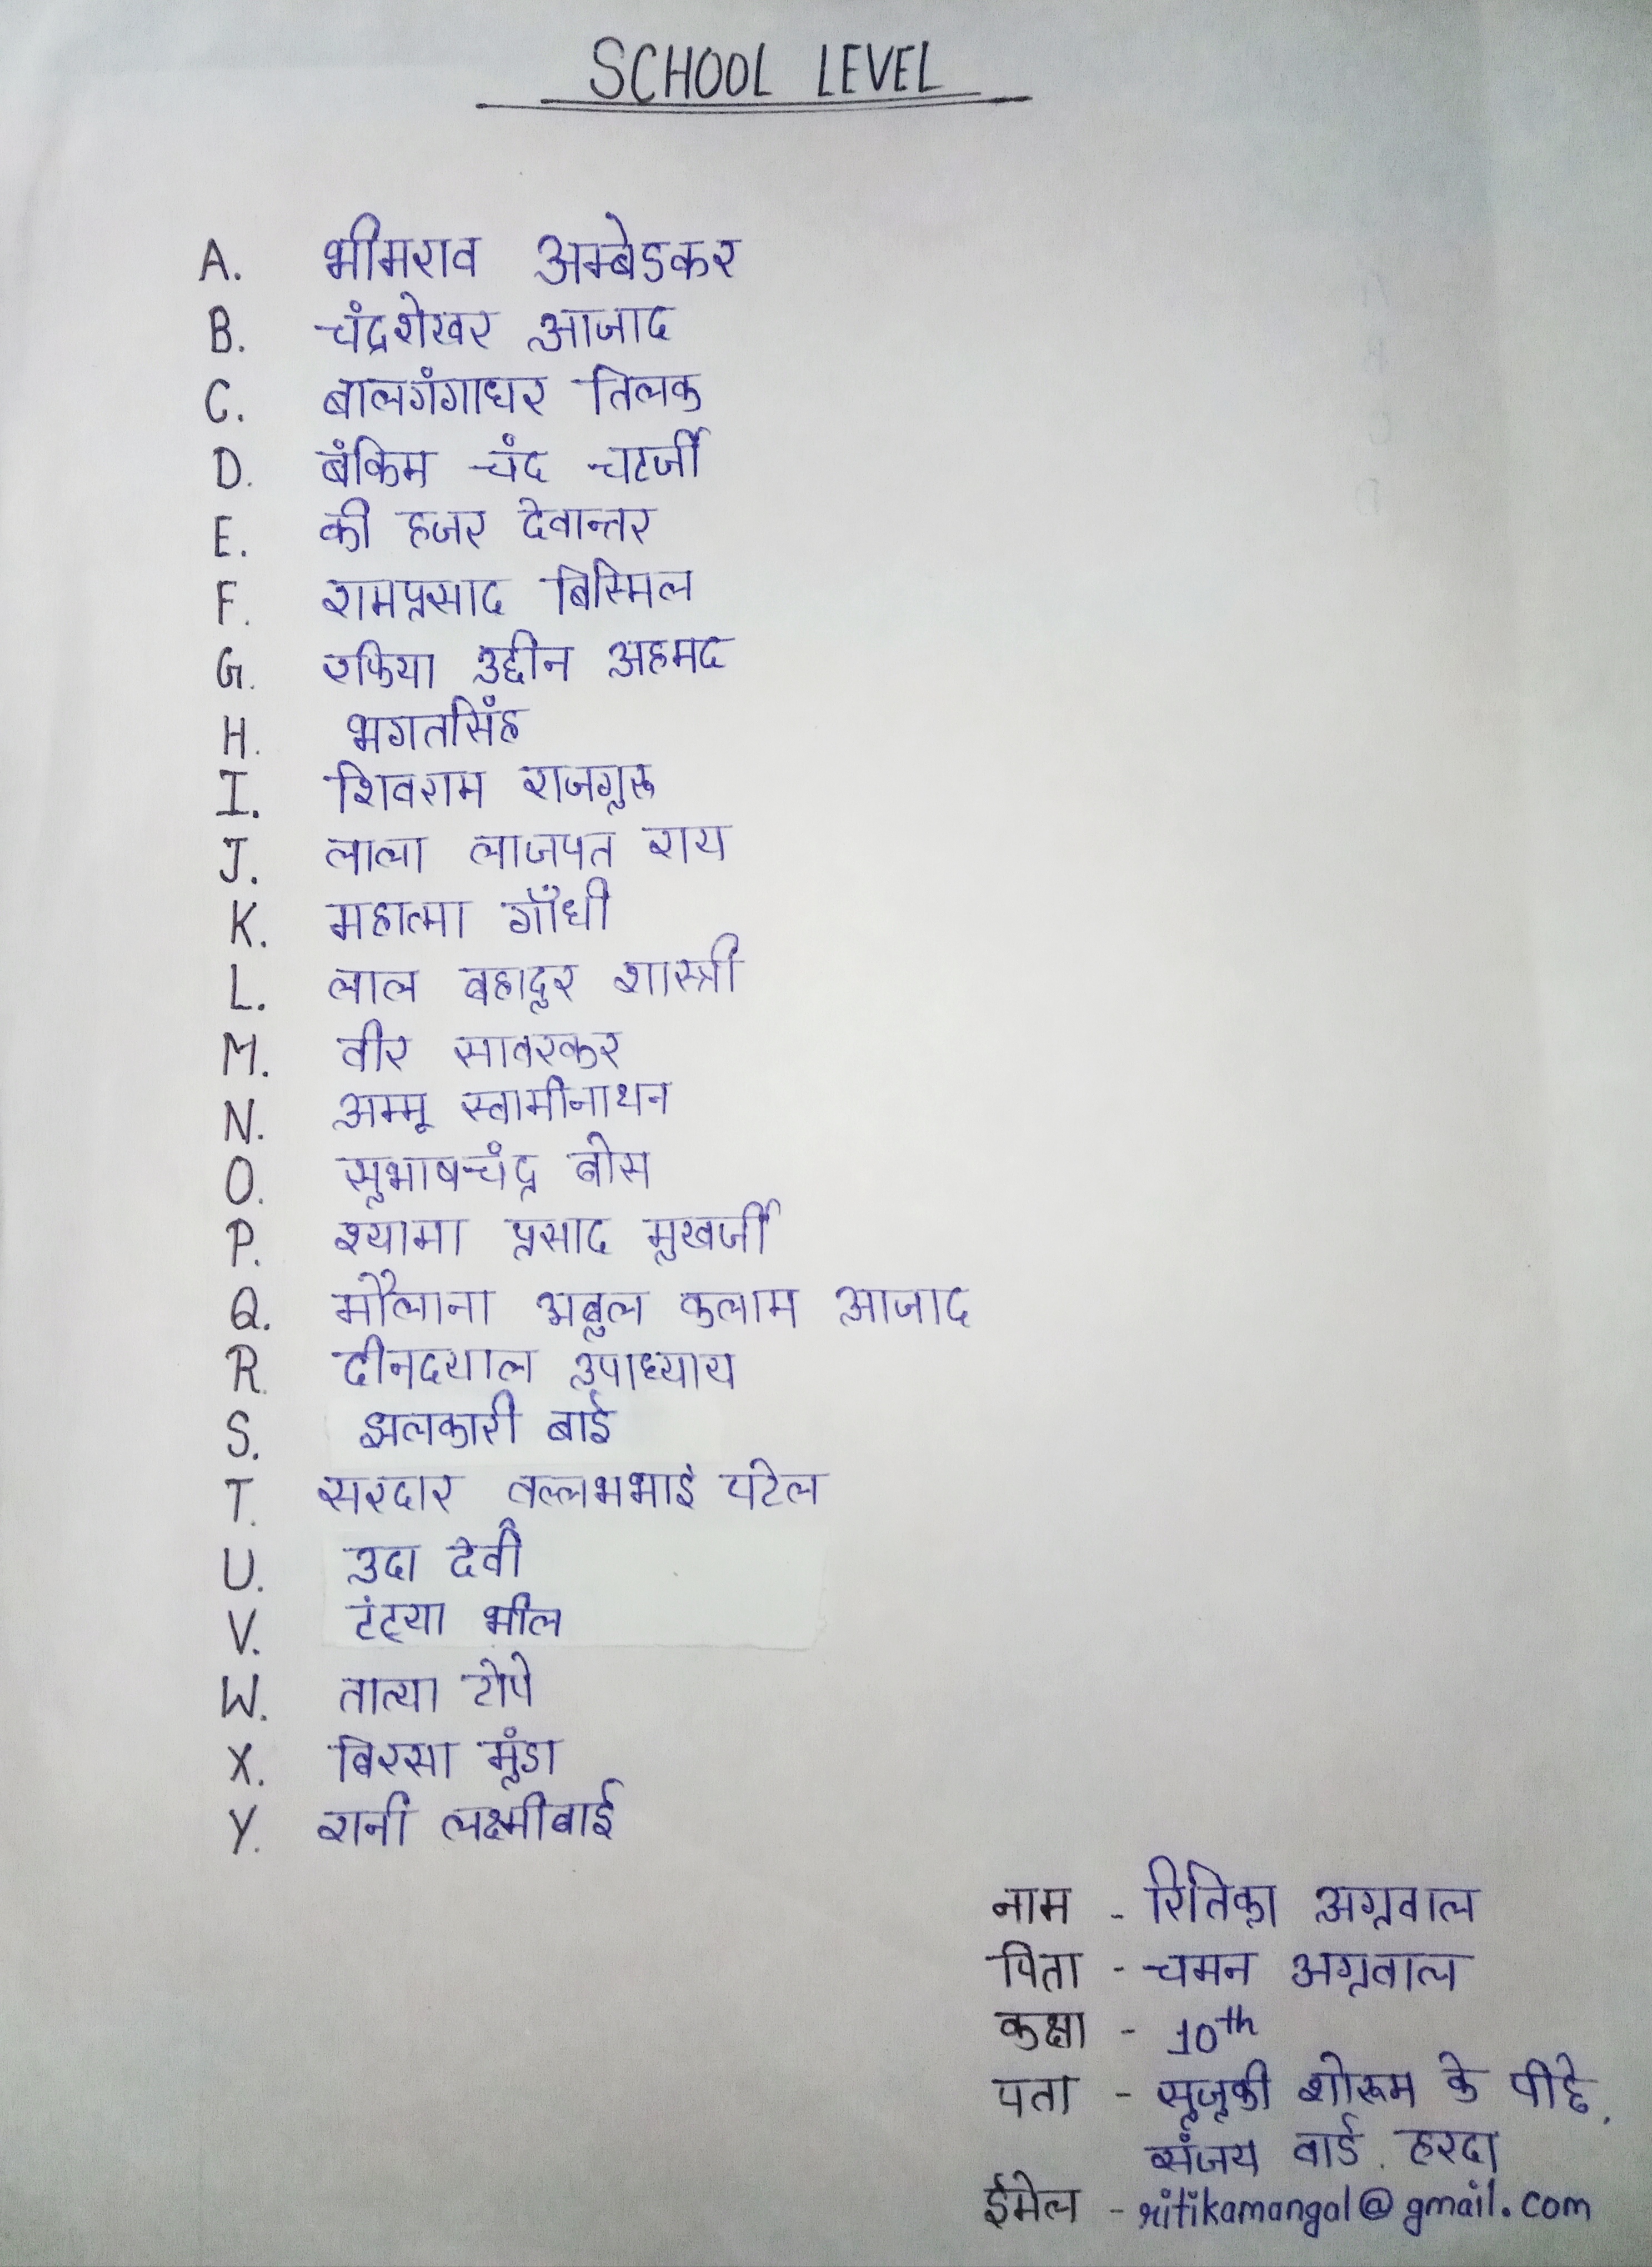 SCHOOL LEVEL
A. भीमराव अम्बेडकर
B. चंद्रशेखर आजाद
C. बालगंगाधर तिलक
D. बंकिम चंद चटर्जी
E. की हजर देवान्तर
F. रामप्रसाद बिस्मिल
G. रफिया उद्दीन अहमद
H. भगतसिंह
I. शिवराम राजगुरू
J. लाला लाजपत राय
K. महात्मा गाँधी
L. लाल बहादुर शास्त्री
M. वीर सावरकर
N. अम्मू स्वामीनाथन
O. सुभाषचंद्र बोस
P. श्यामा प्रसाद मुखर्जी
Q. मौलाना अबुल कलाम आजाद
R. दीनदयाल उपाध्याय
S. झलकारी बाई
T. सरदार वल्लभभाई पटेल
U. उदा देवी
V. टंट्या भील
W. तात्या टोपे
X. बिरसा मुंडा
Y. रानी लक्ष्मीबाई
नाम - रितिका अग्रवाल
पिता - चमन अग्रवाल
कक्षा - 10th
पता - सुजुकी शोरूम के पीछे,
संजय वार्ड. हरदा
ईमेल - ritikamangal@gmail.com